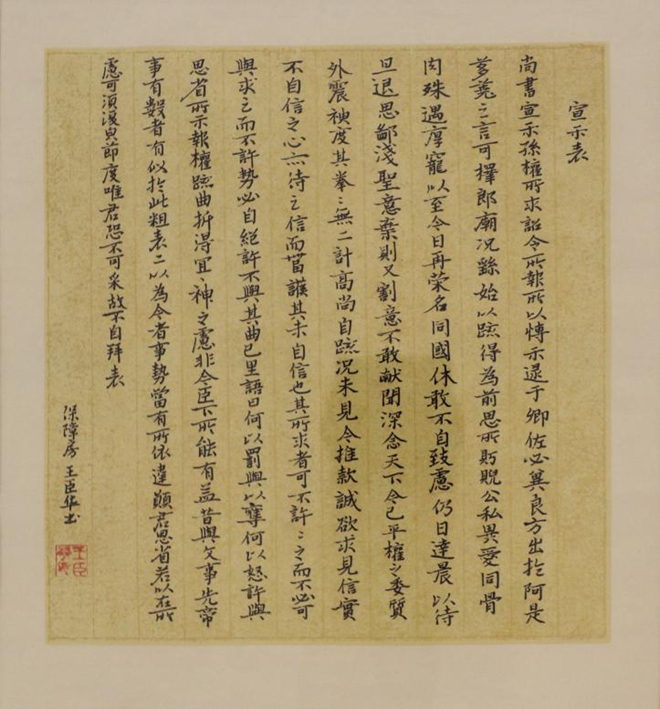 宣示表
尚書宣示孫權所求詔令所報所以博示逮于卿佐必冀良方出於阿是
芻蕘之言可擇郎廟况繇始以疏得為前思所眄睨公私異愛同骨
肉殊遇厚寵以至今日再榮名同國休敢不自致慮仍日達晨以待
旦退思鄙淺聖意棄則又割意不敢献聞深念天下今已平權之委質
外震神度其拳〻無二計高尚自疏况未見今推款誠欲求見信實
不自信之心亦待之信而當護其未自信也其所求者可不許〻之而不必可
與求之而不許勢必自絕許不與其曲已里語曰何以罰與以奪何以怒許與
思省所示報權疏曲折得宜〻神之慮非今臣下所能有益昔與文事先帝
事有數者有似於此粗表二以為今者事勢當有所依違願君思省若以在所
慮可須後與節度唯君恐不可采故不自拜表
保障房 王臣华书